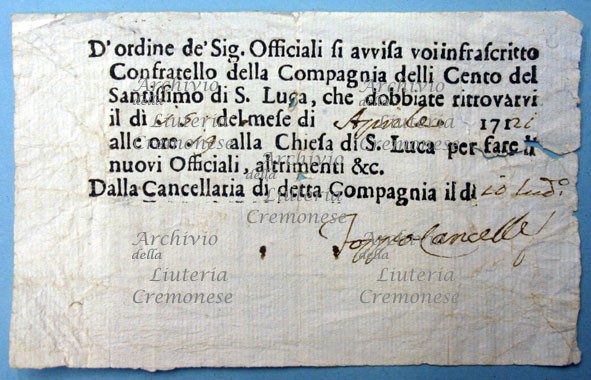 D'ordine de' Sig. Officiali si avvisa voi infrascritto
Confratello della Compagnia delli Cento del
Santissimo di S. Luca, che dobbiate ritrovarvi
il di del mese di Aprile 171
alle ore alla Chiesa di S. Luca per fare li
nuovi Officiali, altrimenti &c.
Dalla Cancellaria di detta Compagnia il di
Cancell
Archivio
della
Liuteria
Cremonese
Archivio
della
Liuteria
Cremonese
Archivio
della
Liuteria
Cremonese
Archivio
della
Liuteria
Cremonese
Archivio
della
Liuteria
Cremonese